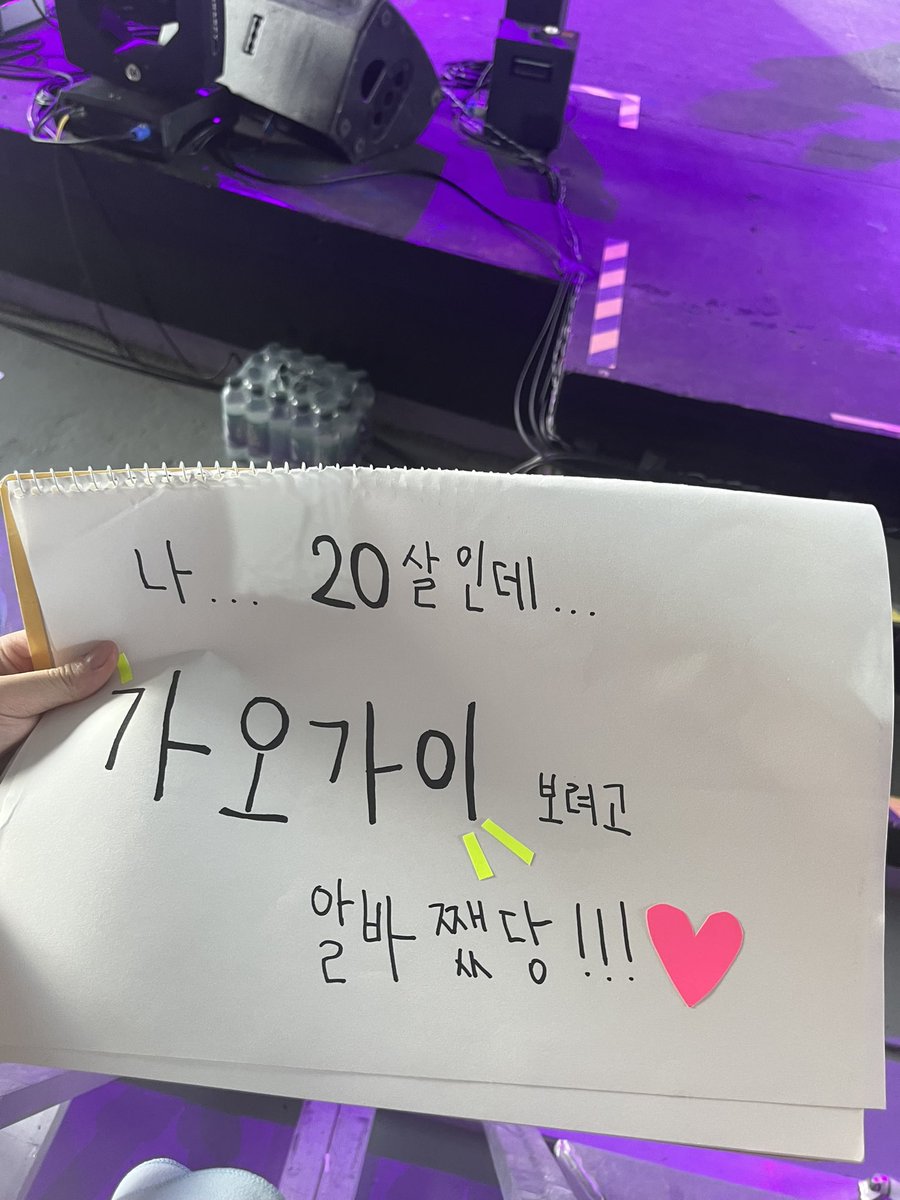 나... 20살인데...
가오가이 보려고
알바 쨌당!!!